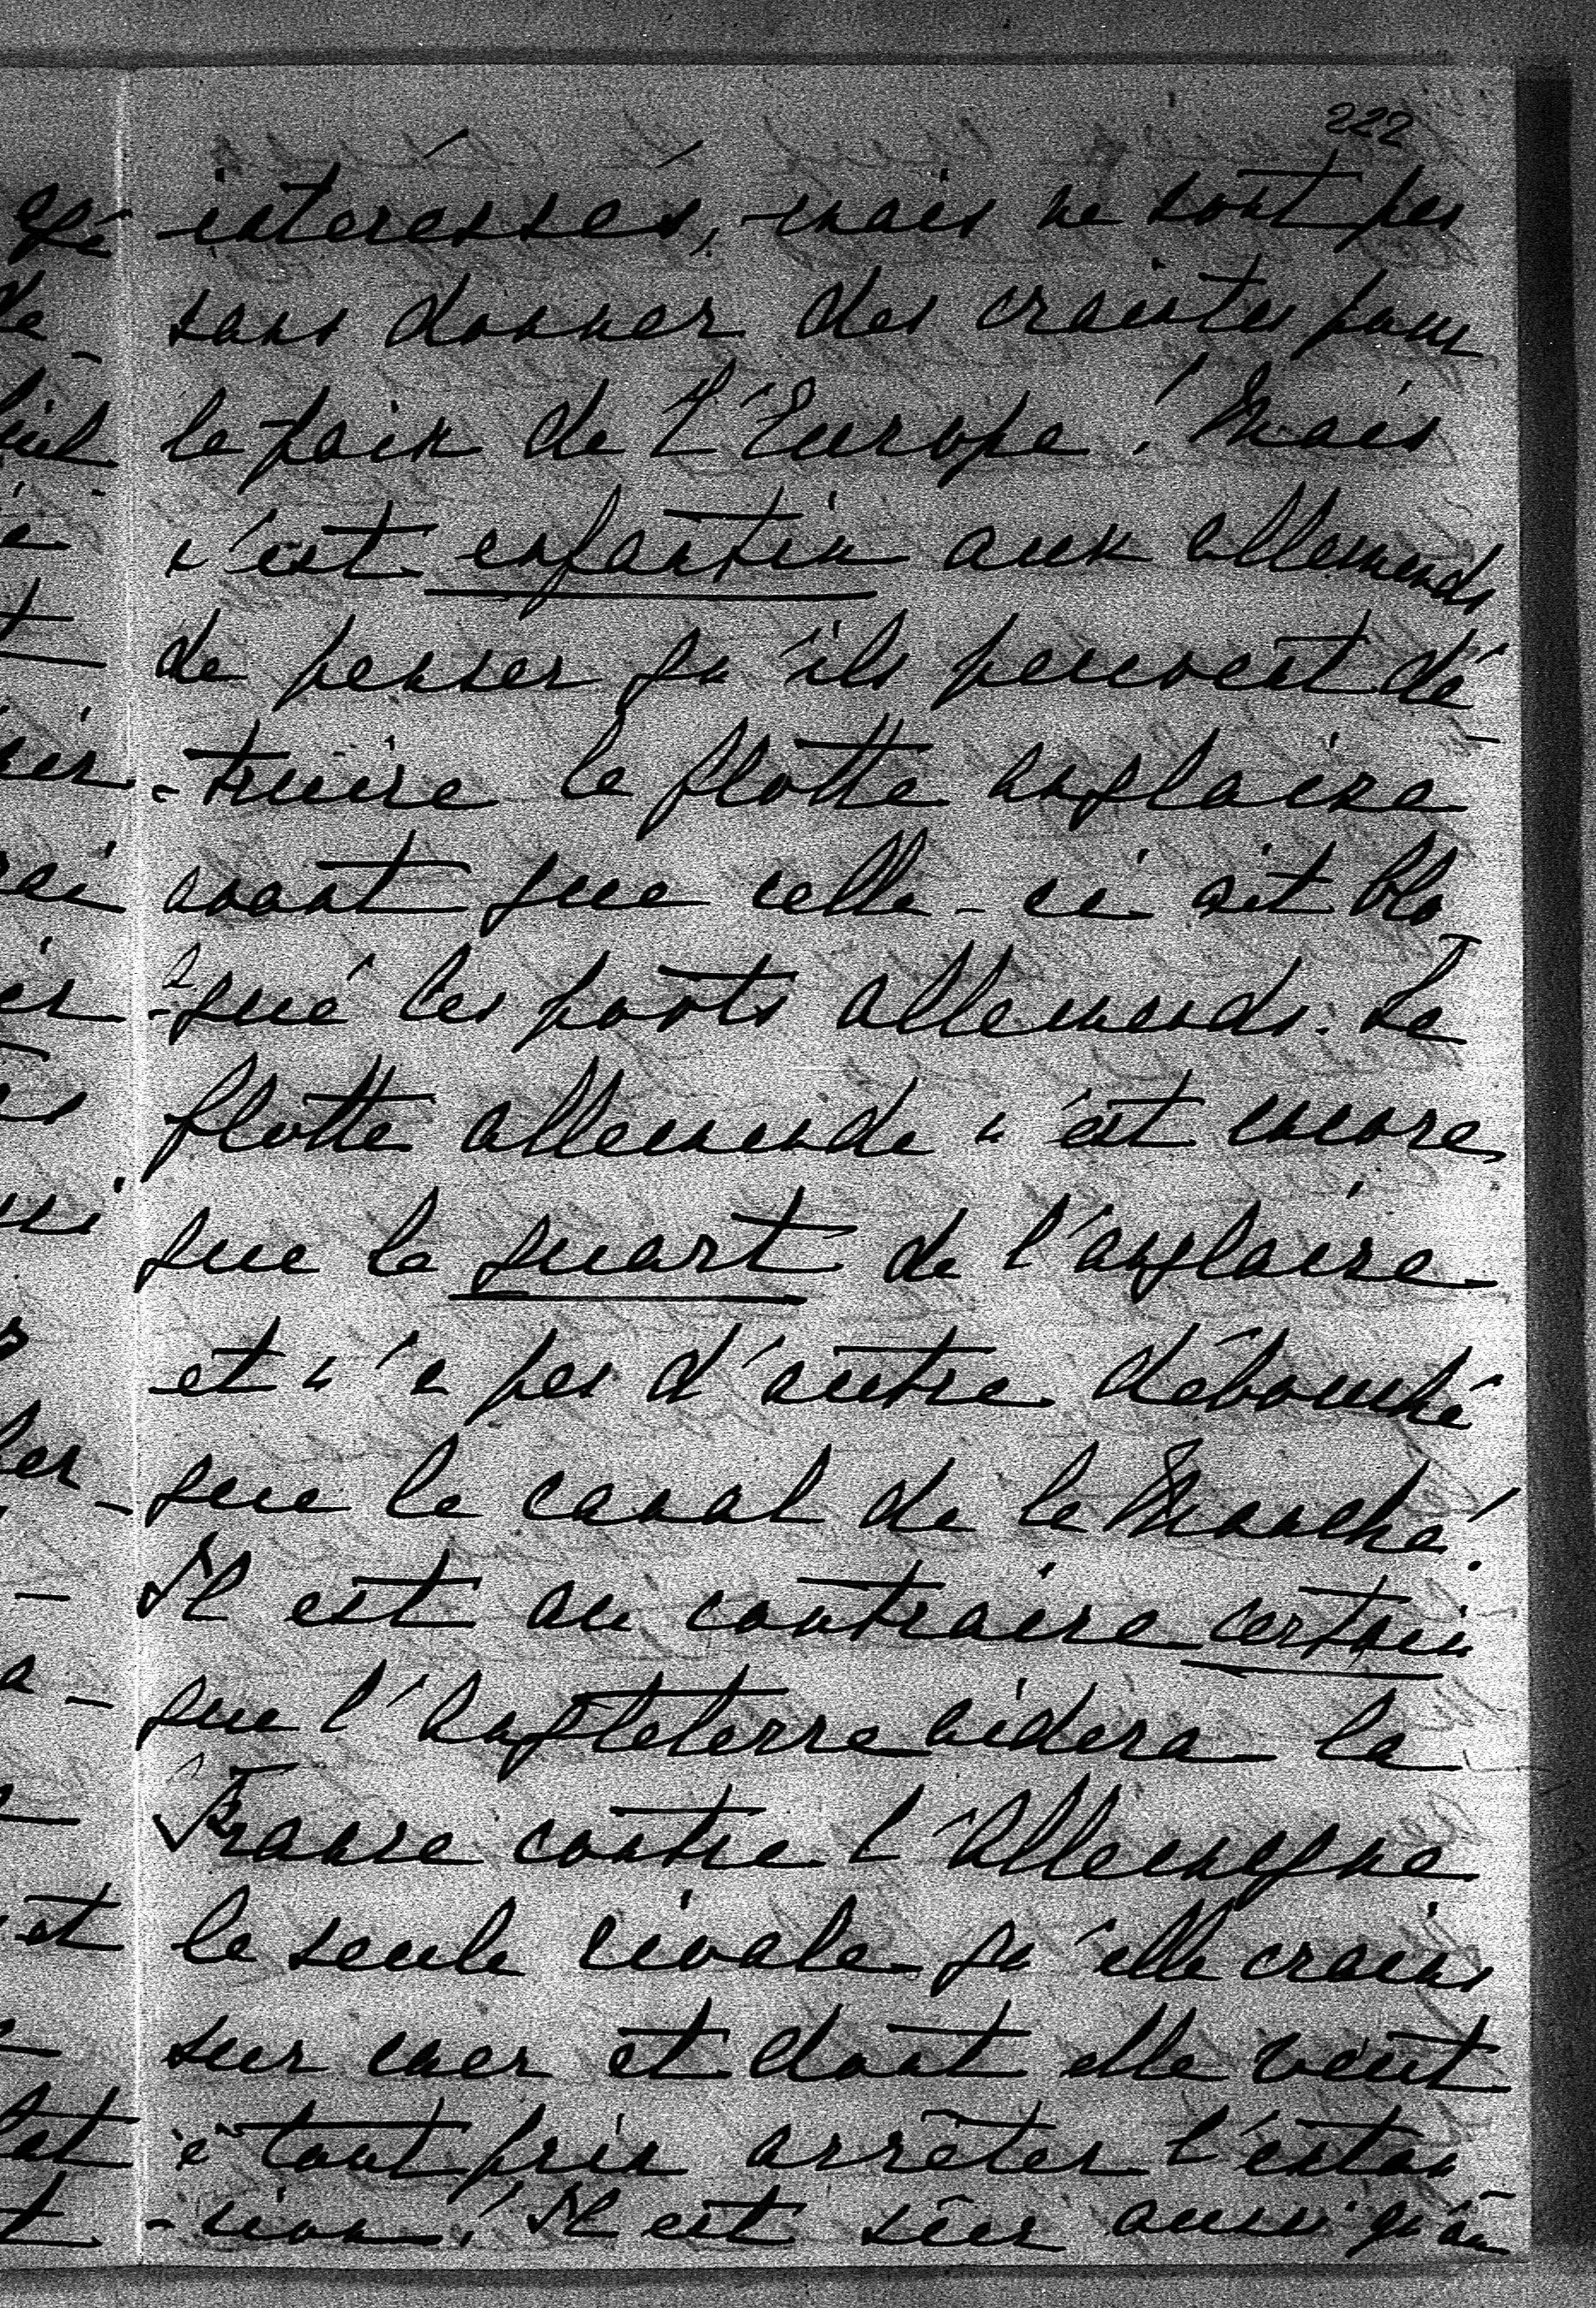 222
intéressés, mais ne sont pas
sans donner des craintes pour
la paix de l'Europe! Mais
c'est enfantin aux allemands
de penser qu'ils peuvent dé
-truire la flotte anglaise
avant que celle-ci ait blo
-qué les ports allemands. La
flotte allemande n'est encore
que le quart de l'anglaise
et n'a pas d'autre débouché
que le canal de la Manche!
Il est au contraire certain
que l'Angleterre aidera la
France contre l'Allemagne
la seule rivale qu'elle craint
sur mer et dont elle veut
à tout prix arrêter l'exten
-sion! Il est sûr aussi qu'en